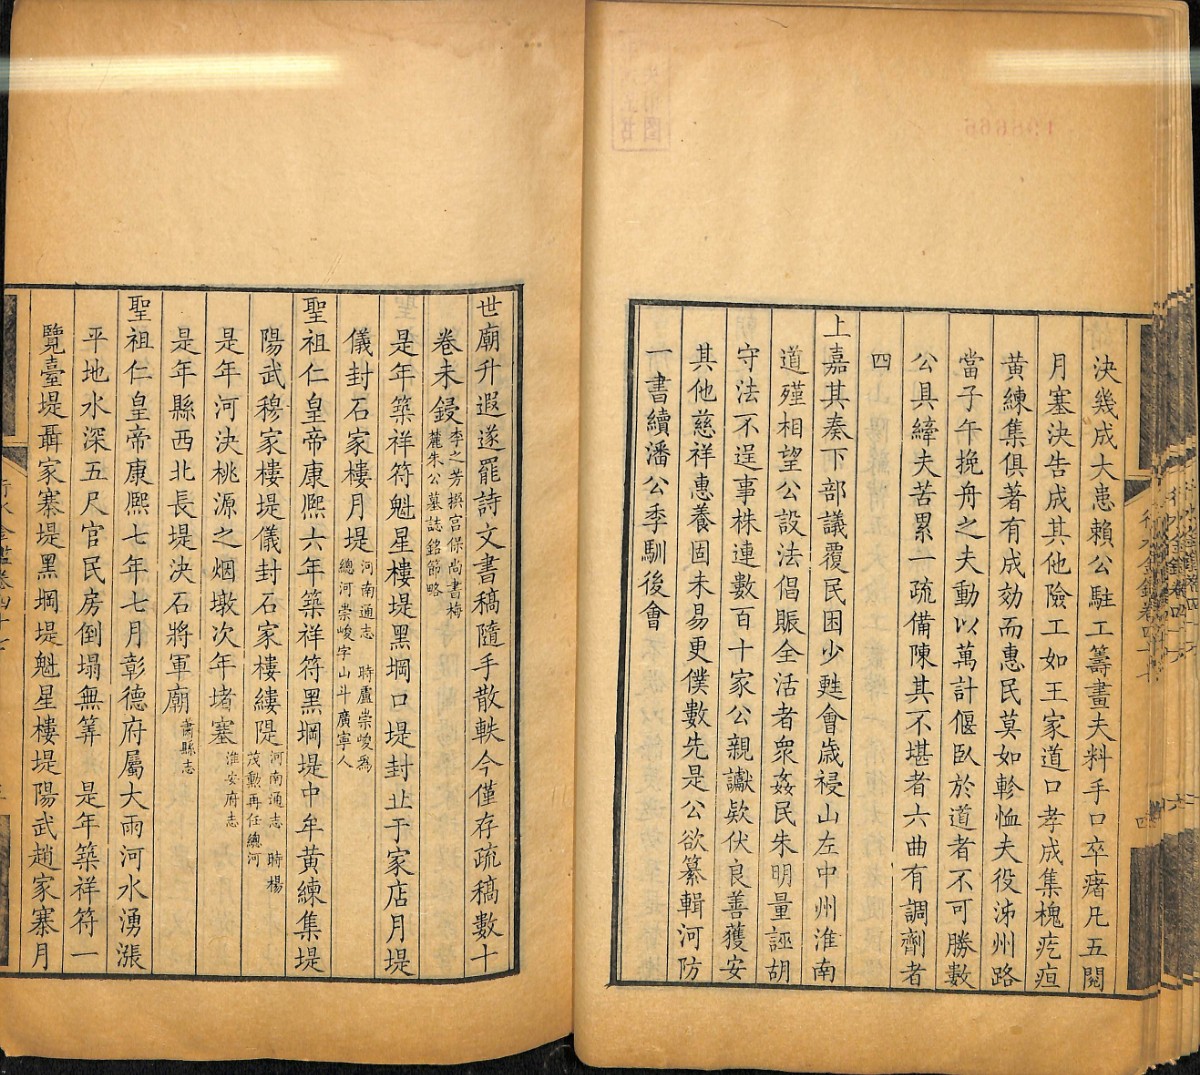 決幾成大患賴公駐工籌畫夫料手口卒瘏凡五閱
月塞決告成其他險工如王家道口孝成集槐疙疸
黃練集俱著有成効而惠民莫如軫恤夫役沛州路
當子午挽舟之夫動以萬計偃臥於道者不可勝數
公具縴夫苦累一疏備陳其不堪者六曲有調劑者
四
上嘉其奏下部議覆民困少甦會歲祲山左中州淮南
道殣相望公設法倡賑全活者衆姦民朱明量誣胡
守法不逞事株連數百十家公親讞欵伏良善獲安
其他慈祥惠養固未易更僕數先是公欲纂輯河防
一書續潘公季馴後會
世廟升遐遂罷詩文書稿隨手散軼今僅存疏稿數十
卷未鋟李之芳撰宮保尚書梅麓朱公墓誌銘節略
是年築祥符魁星樓堤黑堽口堤封丘于家店月堤
儀封石家樓月堤河南通志 時盧崇峻為總河崇峻字山斗廣寧人
聖祖仁皇帝康熙六年築祥符黑堽堤中牟黃練集堤
陽武穆家樓堤儀封石家樓縷隄河南通志 時楊茂勲再任總河
是年河決桃源之烟墩次年堵塞淮安府志
是年縣西北長堤決石將軍廟蕭縣志
聖祖仁皇帝康熙七年七月彰德府屬大雨河水湧漲
平地水深五尺官民房倒塌無筭 是年築祥符一
覽臺堤聶家寨堤黑堽堤魁星樓堤陽武趙家寨月